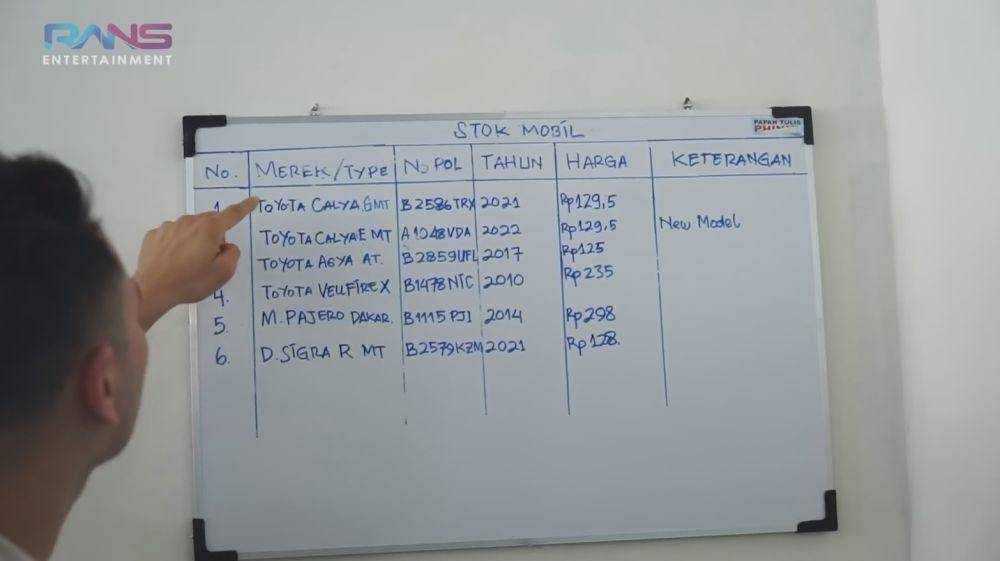 RANS
ENTERTAINMENT
STOK MOBIL
PAPAN TULIS
No. MEREK/TYPE No POL TAHUN HARGA KETERANGAN
1 TOYOTA CALYA.GMT B2586TRX 2021 Rp129,5
TOYOTA CALYA E MT A1048VDA 2022 Rp129,5 New Model
TOYOTA AGYA AT. B2859UFL 2017 Rp125
4. TOYOTA VELLFIRE X B1478NIC 2010 Rp235
5. M. PAJERO DAKAR. B1115PJI 2014 Rp298
6. D. SIGRA R MT B2579KZM 2021 Rp128.